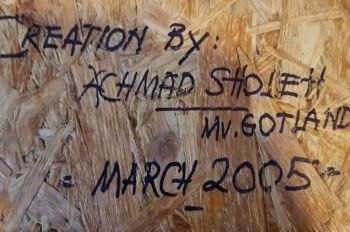 CREATION BY:
ACHMAD SHOLEH
MV.GOTLAND
- MARCH_2005 -